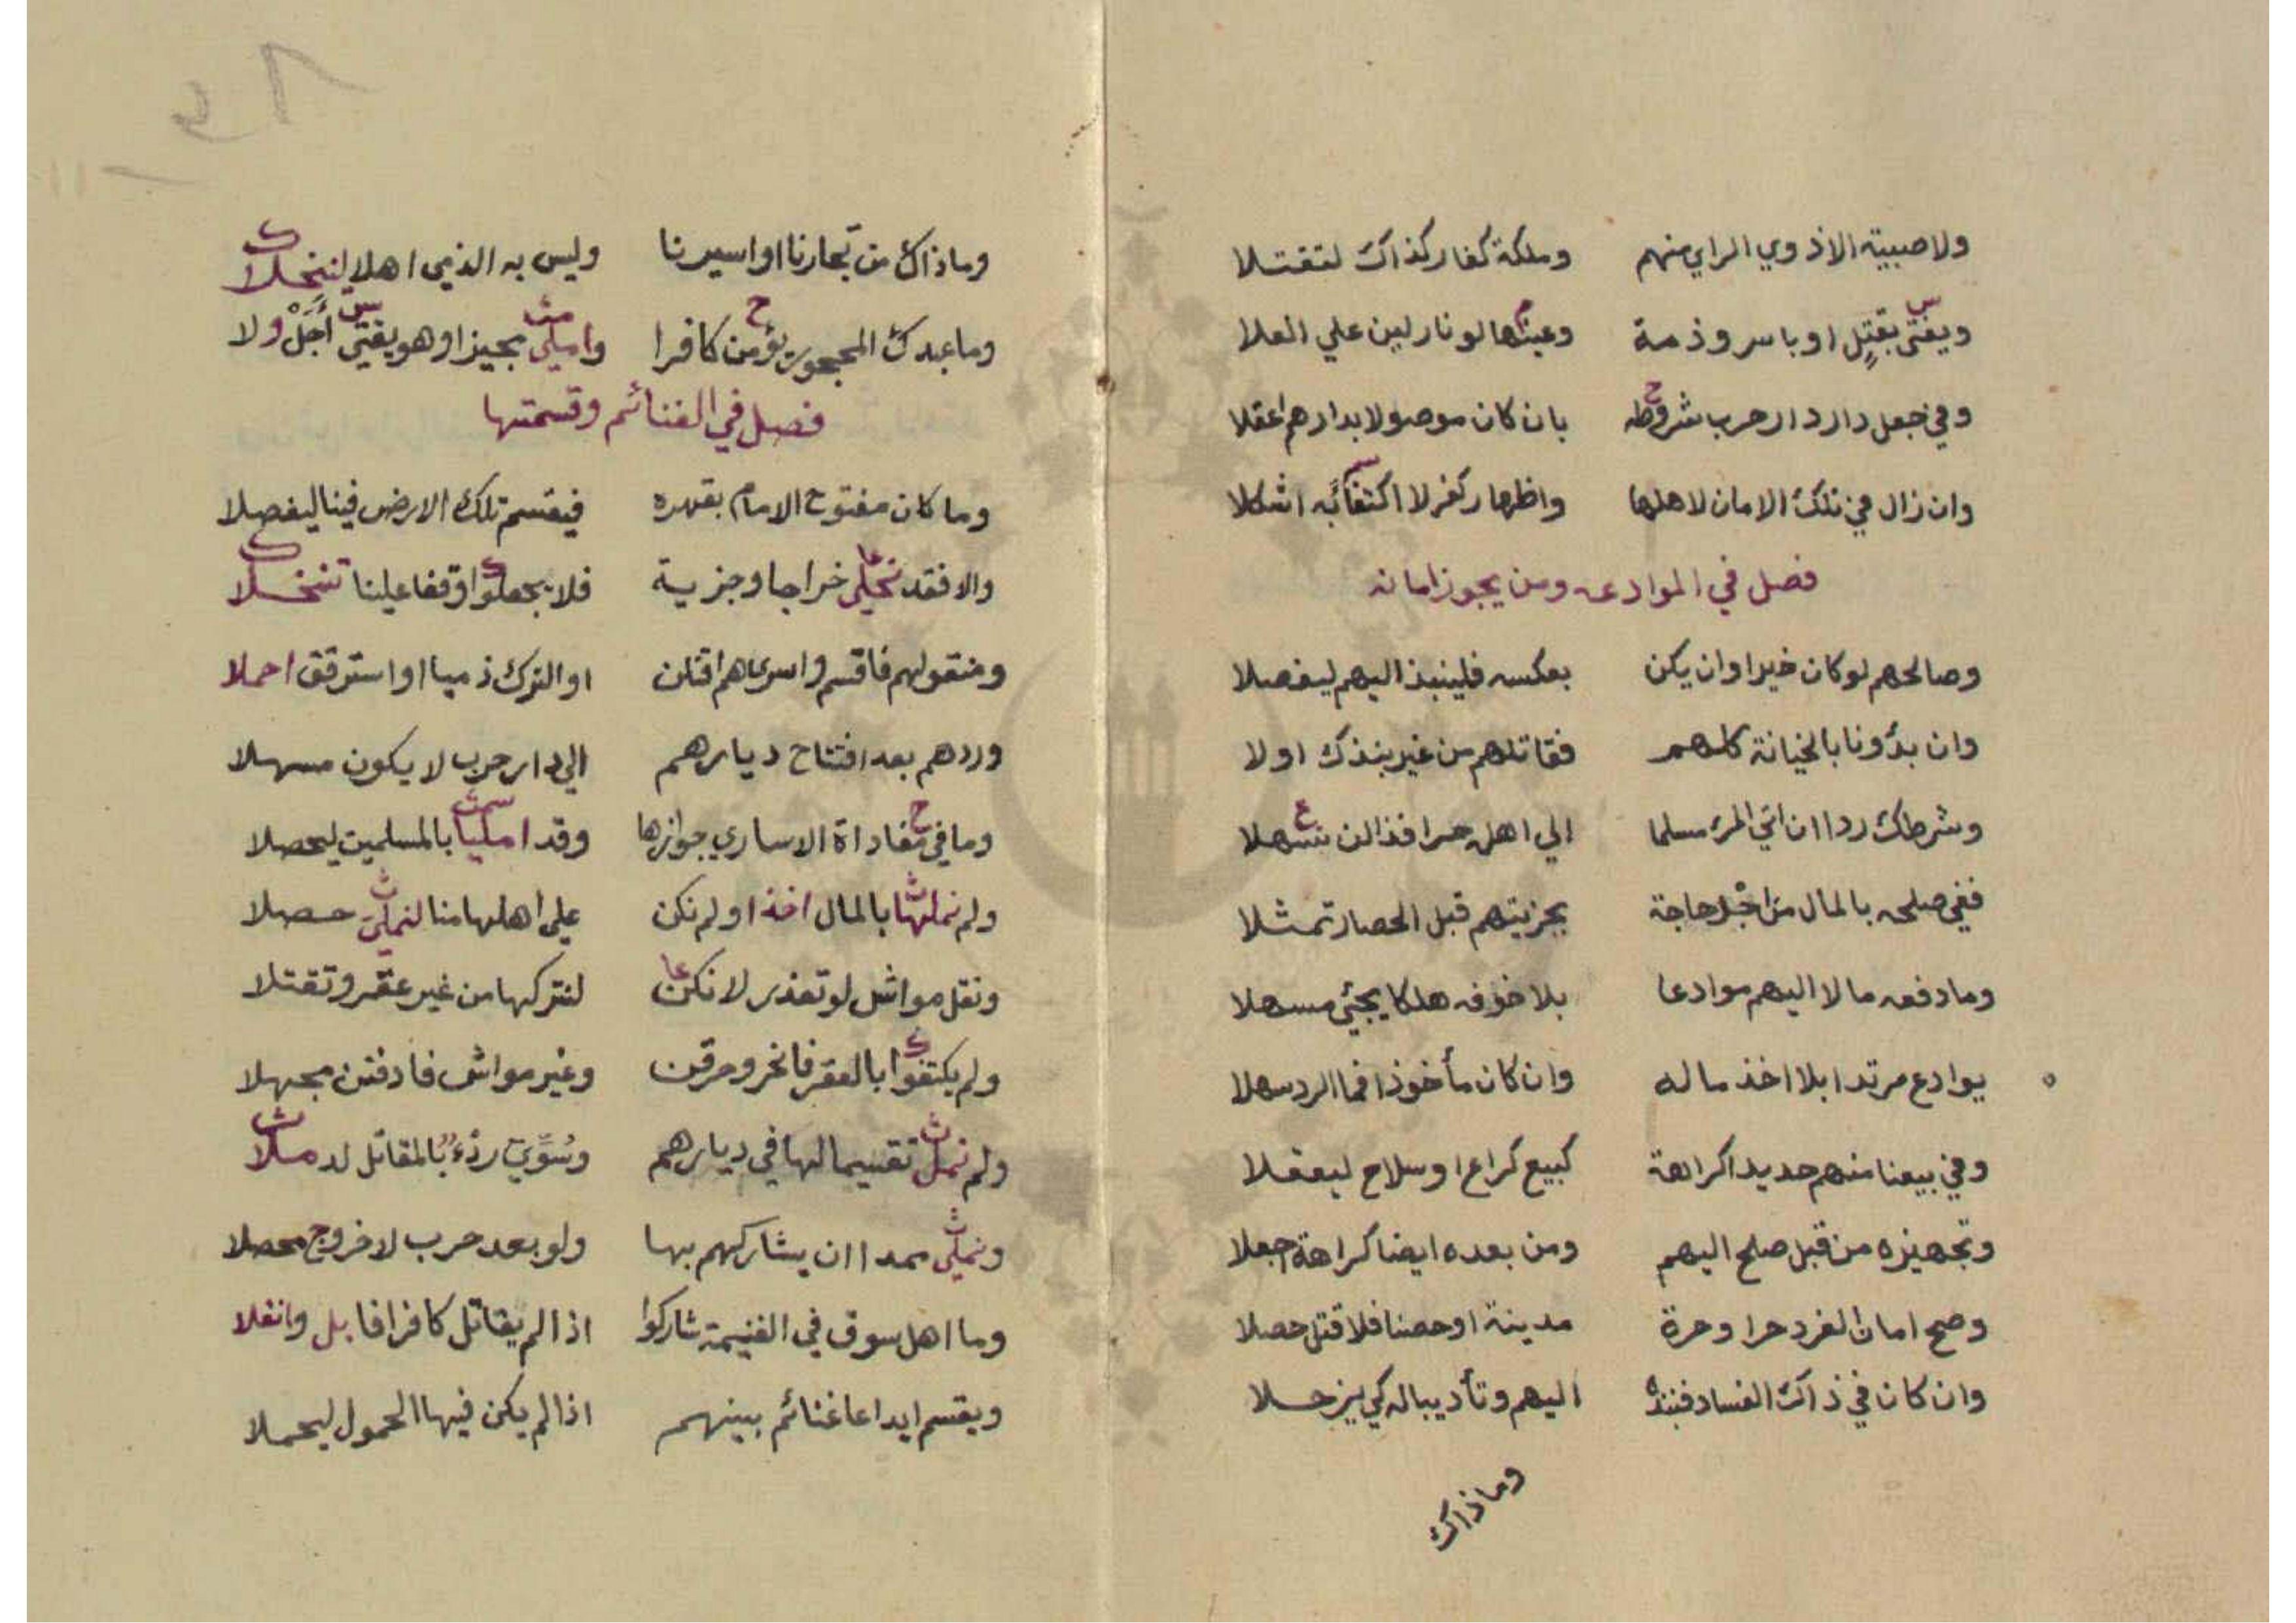 ولا صبية الا ذوي الراي منهم وملكة كفار كذاك لتقتلا
ويفتى بقتل او باسر وذمة وعينها لو نار لين علي العلا
وفي جعل دار دار حرب شروطه بان كان موصولا بدارهم اعقلا
وان زال في تلك الامان لاهلها واظهار كفر لا اكتفائه اشكلا
فصل في الموادعه ومن يجوز امانه
وصالحهم لو كان خيرا وان يكن بعكسه فلينبذ اليهم ليفصلا
وان بدؤنا بالخيانة كلهم فقاتلهم من غير بنذك اولا
وشرطك ردا ان اتي المرء مسلما الي اهل حرا فذا لن تسهلا
ففي صلحه بالمال من اجل حاجة بجزيتهم قبل الحصار تمثلا
وما دفعه مالا اليهم موادعا بلا خوفه هلكا يجيئ مسهلا
يوادع مرتدا بلا اخذ ماله وان كان مأخوذا فما الرد سهلا
وفي بيعنا منهم حديدا كراهة كبيع كراع او سلاح ليعقلا
وتجهيزه من قبل صلح اليهم ومن بعده ايضا كراهة اجعلا
وصح امان الفرد حرا وحرة مدينة او حصنا فلا قتل حصلا
وان كان في ذاك الفساد فنبذه اليهم وتأديبا له كي يزحلا
وماذاك
وماذاك من تجارنا او اسيرنا وليس به الذمي اهلا لينخلا
وما عبدك المحجور يؤمن كافرا واملي مجيزا وهو يفتي أجل ولا
فصل في الغنائم وقسمتها
وما كان مفتوح الامام بقهره فيقسم تلك الارض فينا ليفصلا
والا فقد نحيلي خراجا وجزية فلا يجعلوا وقفا علينا تنخلا
ومنقولهم فاقسم واسراهم اقتلن او الترك ذميا او استرقق احملا
وردهم بعد افتتاح ديارهم الي دار حرب لا يكون مسهلا
وما في مفاداة الاساري جوازها وقد امليا بالمسلمين ليحصلا
ولم نملها بالمال اخذا ولم نكن علي اهلها منا لنملي حصلا
ونقل مواشل لو تعذر لا نكن لنتركها من غير عقر وتقتلا
ولم يكتفوا بالعقر فانخر وحرقن وغير مواش فادفنن مجهلا
ولم نمل تقسيما لها في ديارهم وسوي رذء بالمقاتل لد ملا
ونملي ممدا ان يشاركهم بها ولو بعد حرب لا خروج محصلا
وما اهل سوق في الغنيمة شاركوا اذا لم يقاتل كافرا فابل وانفلا
ويقسم ايداعا غنائم بينهم اذا لم يكن فيها الحمول ليحملا